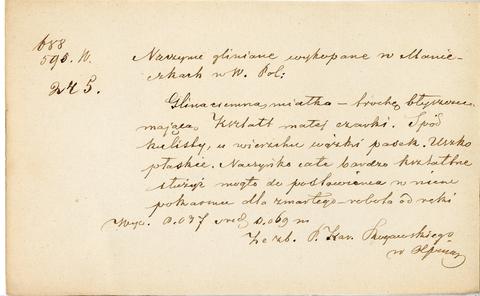 688
598. N.
Naczynie gliniane wykopane w Manie-
czkach w W. Pol:
245.
Glina ciemna, miałka – trochę błyszczą-
mająca Kształt małej czarki. Spód
kulisty, u wierzchu wązki pasek. Uszko
płaskie. Naczyńko całe bardzo kształtne
służyć mogło do postawienia w niem
pokarmu dla zmarłego – robota od ręki
Wys. 0.037 śred. 0.069 m
Ze zb. P. Kar.
w